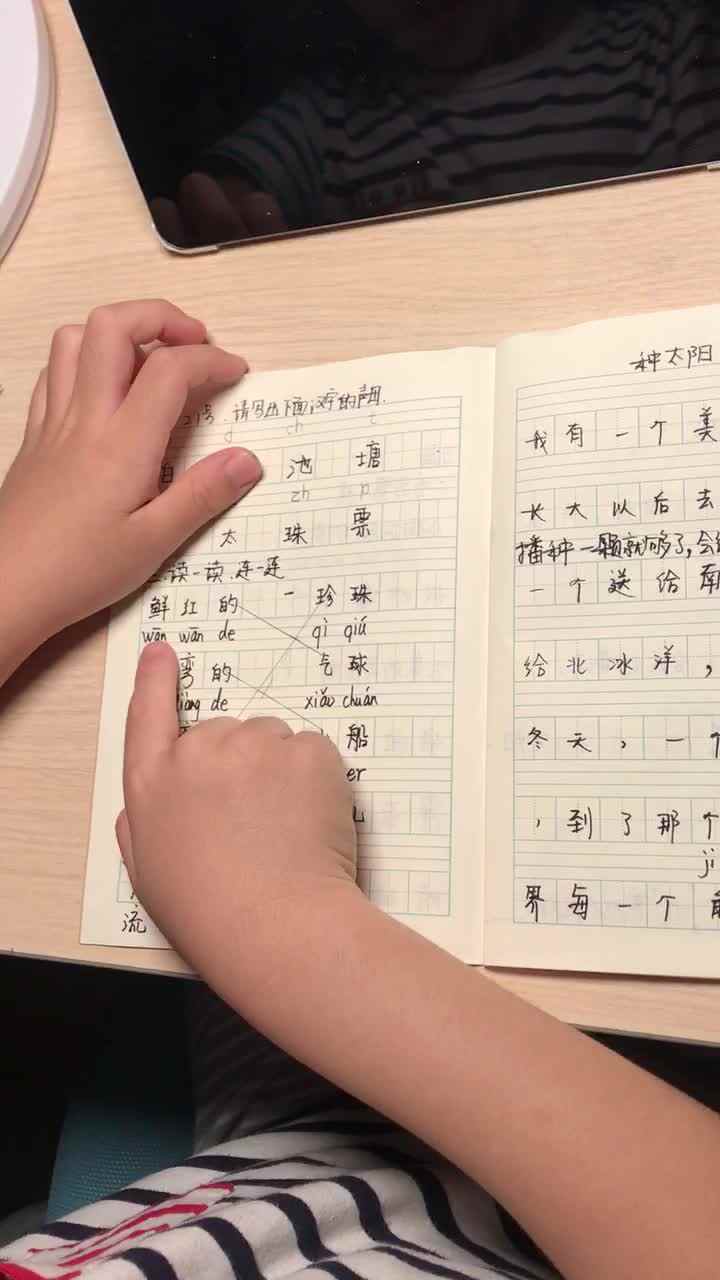 21号.请写出下面汉字的声母.
ch t
池 塘
zh p
太 珠 票
二.读一读.连一连
鲜 红 的 一 珍 珠
wān wān de qì qiú
弯 的 气 球
liàng de xiǎo chuán
船
er
儿
流
种太阳
我 有 一 个 美
长 大 以 后 去
播种 一颗就够了,会
一 个 送 给 南
给 北 冰 洋 ,
冬 天 , 一 个
, 到 了 那 个
jì
界 每 一 个 角